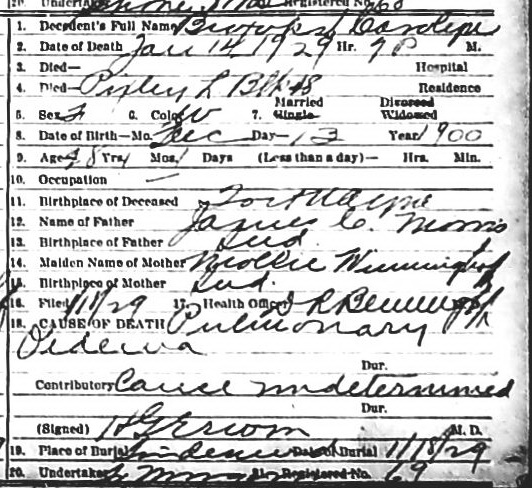 20. Undertaker Registered No. 268
1. Decedent's Full Name
2. Date of Death Jan 14 1929 Hr. 9 P M.
3. Died— Hospital
4. Died— Residence
5. Sex F 6. Color W 7. Married Single Divorced Widowed
8. Date of Birth—Mo. Dec Day—13 Year 1900
9. Age 28 Yrs. 1 Mos. 1 Days (Less than a day)— Hrs. Min.
10. Occupation —
11. Birthplace of Deceased Fort Wayne
12. Name of Father James C. Morris
13. Birthplace of Father Ind.
14. Maiden Name of Mother Mollie
15. Birthplace of Mother Ind.
16. Filed 1/18/29 17. Health Officer
18. CAUSE OF DEATH Pulmonary
Oedema
Dur.
Contributory Cause undetermined
Dur.
(Signed) M. D.
19. Place of Burial Date of Burial 1/18/29
20. Undertaker 21. Registered No. 69